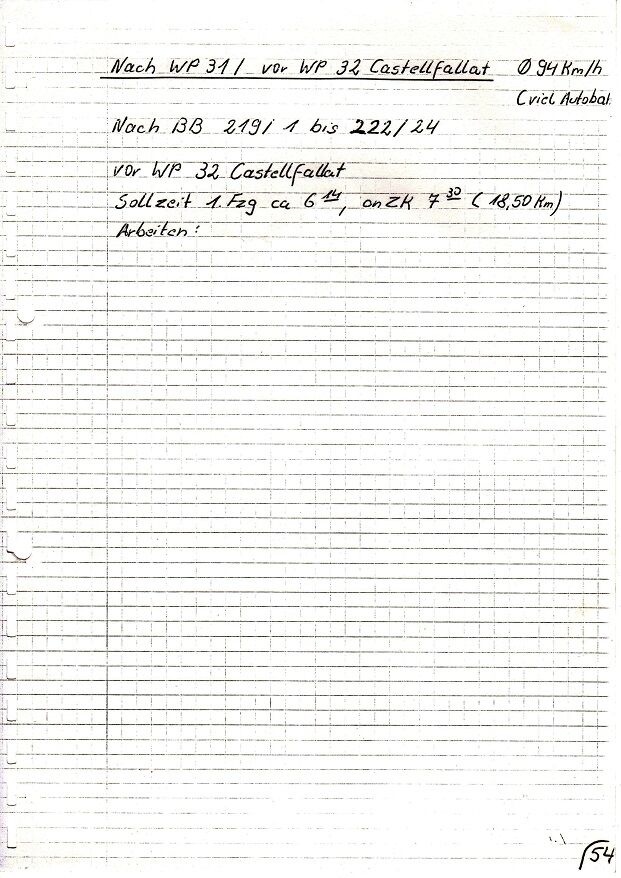 Nach WP 31 / vor WP 32 Castellfallat Ø 94 Km/h
(viel Autobat
Nach BB 219/ 1 bis 222/24
vor WP 32 Castellfallat
Sollzeit 1. Fzg ca 6 14, an ZK 7 30 ( 18,50 Km)
Arbeiten :
54